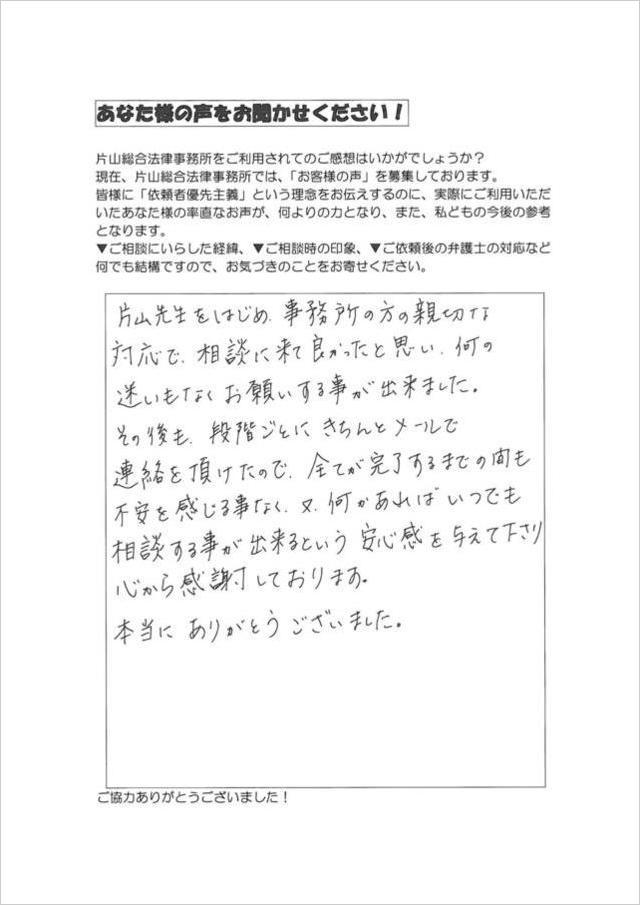 あなた様の声をお聞かせください！
片山総合法律事務所をご利用されてのご感想はいかがでしょうか？
現在、片山総合法律事務所では、「お客様の声」を募集しております。
皆様に「依頼者優先主義」という理念をお伝えするのに、実際にご利用いただ
いたあなた様の率直なお声が、何よりの力となり、また、私どもの今後の参考
となります。
▼ご相談にいらした経緯、▼ご相談時の印象、▼ご依頼後の弁護士の対応など
何でも結構ですので、お気づきのことをお寄せください。
片山先生をはじめ、事務所の方の親切な
対応で、相談に来て良かったと思い、何の
迷いもなくお願いする事が出来ました。
その後も、段階ごとにきちんとメールで
連絡を頂けたので、全てが完了するまでの間も
不安を感じる事なく、又、何かあればいつでも
相談する事が出来るという安心感を与えて下さり
心から感謝しております。
本当にありがとうございました。
ご協力ありがとうございました！